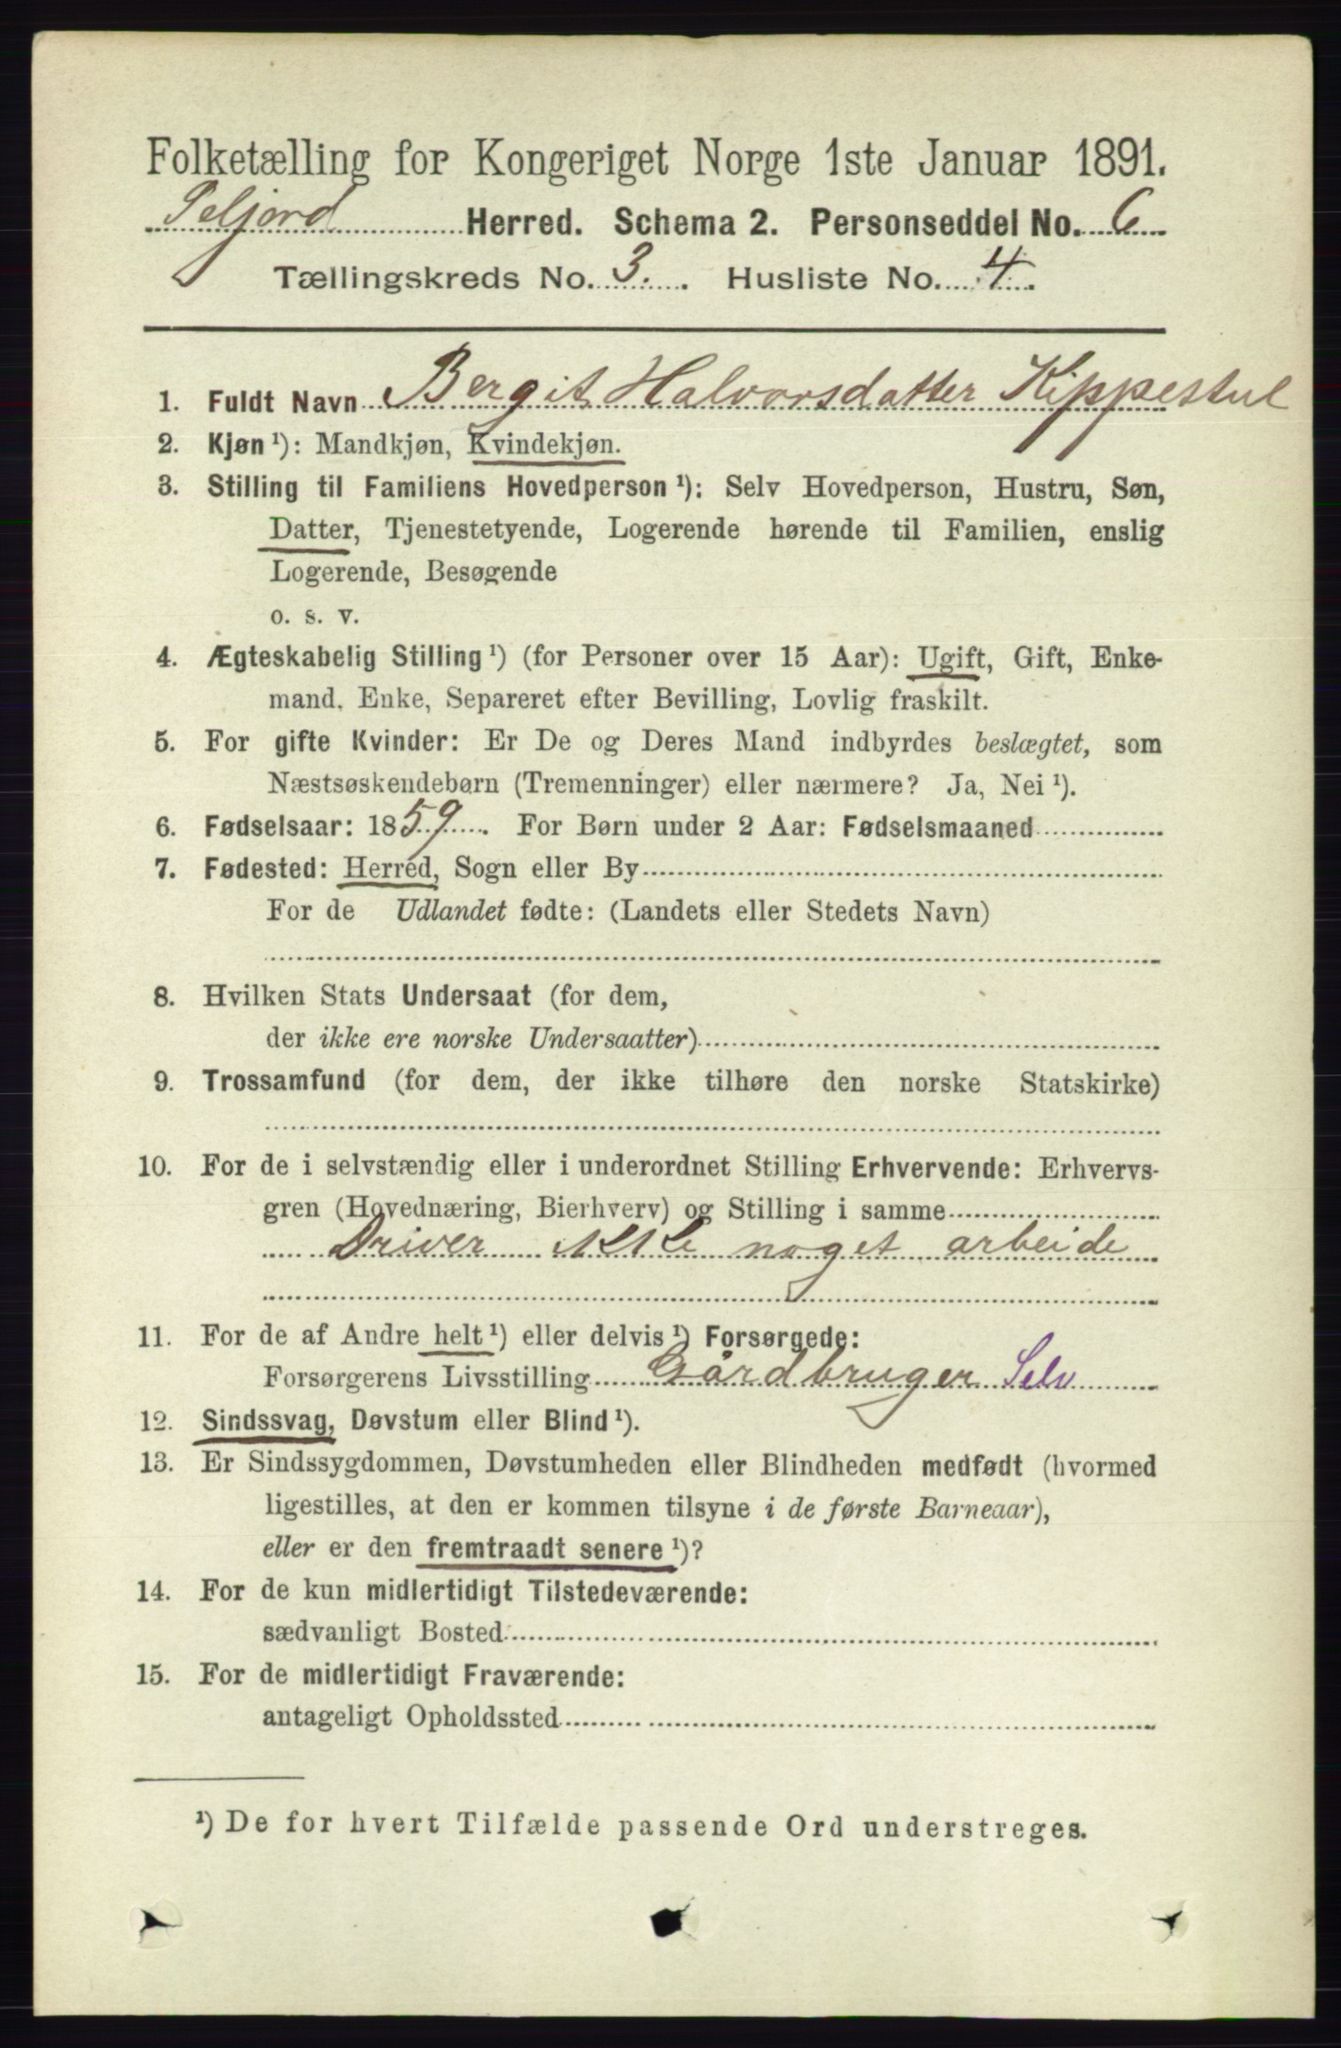 Folketælling for Kongeriget Norge 1ste Januar 1891.
Seljord Herred. Schema 2. Personseddel No. 6
Tællingskreds No. 3. Husliste No. 4.
1. Fuldt Navn Bergit Halvorsdatter Kippestul
2. Kjøn ¹): Mandkjøn, Kvindekjøn.
3. Stilling til Familiens Hovedperson ¹): Selv Hovedperson, Hustru, Søn,
Datter, Tjenestetyende, Logerende hørende til Familien, enslig
Logerende, Besøgende
o. s. v.
4. Ægteskabelig Stilling ¹) (for Personer over 15 Aar): Ugift, Gift, Enke-
mand, Enke, Separeret efter Bevilling, Lovlig fraskilt.
5. For gifte Kvinder: Er De og Deres Mand indbyrdes beslægtet, som
Næstsøskendebørn (Tremenninger) eller nærmere? Ja, Nei ¹).
6. Fødselsaar: 1859. For Børn under 2 Aar: Fødselsmaaned
7. Fødested: Herred, Sogn eller By
For de Udlandet fødte: (Landets eller Stedets Navn)
8. Hvilken Stats Undersaat (for dem,
der ikke ere norske Undersaatter)
9. Trossamfund (for dem, der ikke tilhøre den norske Statskirke)
10. For de i selvstændig eller i underordnet Stilling Erhvervende: Erhvervs-
gren (Hovednæring, Bierhverv) og Stilling i samme
Driver ikke noget arbeide
11. For de af Andre helt ¹) eller delvis ¹) Forsørgede:
Forsørgerens Livsstilling Gårdbruger Selv
12. Sindssvag, Døvstum eller Blind ¹).
13. Er Sindssygdommen, Døvstumheden eller Blindheden medfødt (hvormed
ligestilles, at den er kommen tilsyne i de første Barneaar),
eller er den fremtraadt senere ¹)?
14. For de kun midlertidigt Tilstedeværende:
sædvanligt Bosted
15. For de midlertidigt Fraværende:
antageligt Opholdssted
¹) De for hvert Tilfælde passende Ord understreges.